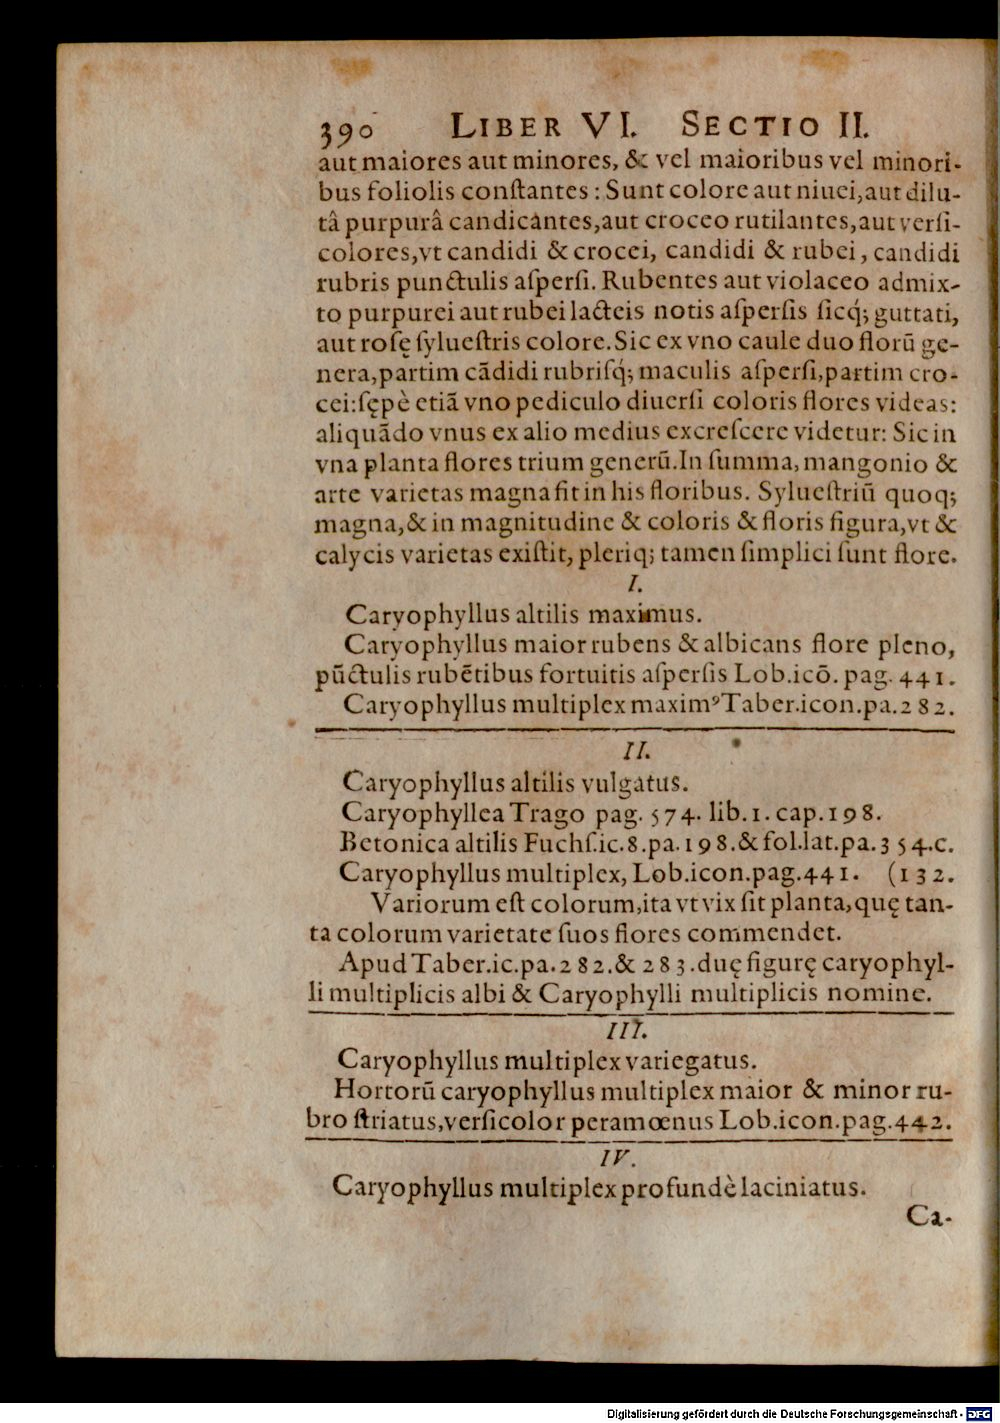 390 LIBER VI. SECTIO II.
aut maiores aut minores, & vel maioribus vel minori-
bus foliolis conſtantes : Sunt colore aut niuei, aut dilu-
tâ purpurâ candicantes, aut croceo rutilantes, aut verſi-
colores, vt candidi & crocei, candidi & rubei, candidi
rubris punctulis aſperſi. Rubentes aut violaceo admix-
to purpurei aut rubei lacteis notis aſperſis ſicq́; guttati,
aut roſę ſylueſtris colore. Sic ex vno caule duo florū ge-
nera, partim cādidi rubriſq́; maculis aſperſi, partim cro-
cei: ſępè etiā vno pediculo diuerſi coloris flores videas:
aliquādo vnus ex alio medius excreſcere videtur: Sic in
vna planta flores trium generū. In ſumma, mangonio &
arte varietas magna fit in his floribus. Sylueſtriū quoq;
magna, & in magnitudine & coloris & floris figura, vt &
calycis varietas exiſtit, pleriq; tamen ſimplici ſunt flore.
I.
Caryophyllus altilis maximus.
Caryophyllus maior rubens & albicans flore pleno,
pūctulis rubētibus fortuitis aſperſis Lob. icō. pag. 441.
Caryophyllus multiplex maximꝰ Taber. icon. pa. 282.
II.
Caryophyllus altilis vulgatus.
Caryophyllea Trago pag. 574. lib. 1. cap. 198.
Betonica altilis Fuchſ. ic. 8. pa. 198. & fol. lat. pa. 354. c.
Caryophyllus multiplex, Lob. icon. pag. 441. (132.
Variorum eſt colorum, ita vt vix ſit planta, quę tan-
ta colorum varietate ſuos flores commendet.
Apud Taber. ic. pa. 282. & 283. duę figurę caryophyl-
li multiplicis albi & Caryophylli multiplicis nomine.
III.
Caryophyllus multiplex variegatus.
Hortorū caryophyllus multiplex maior & minor ru-
bro ſtriatus, verſicolor peramœnus Lob. icon. pag. 442.
IV.
Caryophyllus multiplex profundè laciniatus.
Ca-
Digitalisierung gefördert durch die Deutsche Forschungsgemeinschaft - DFG